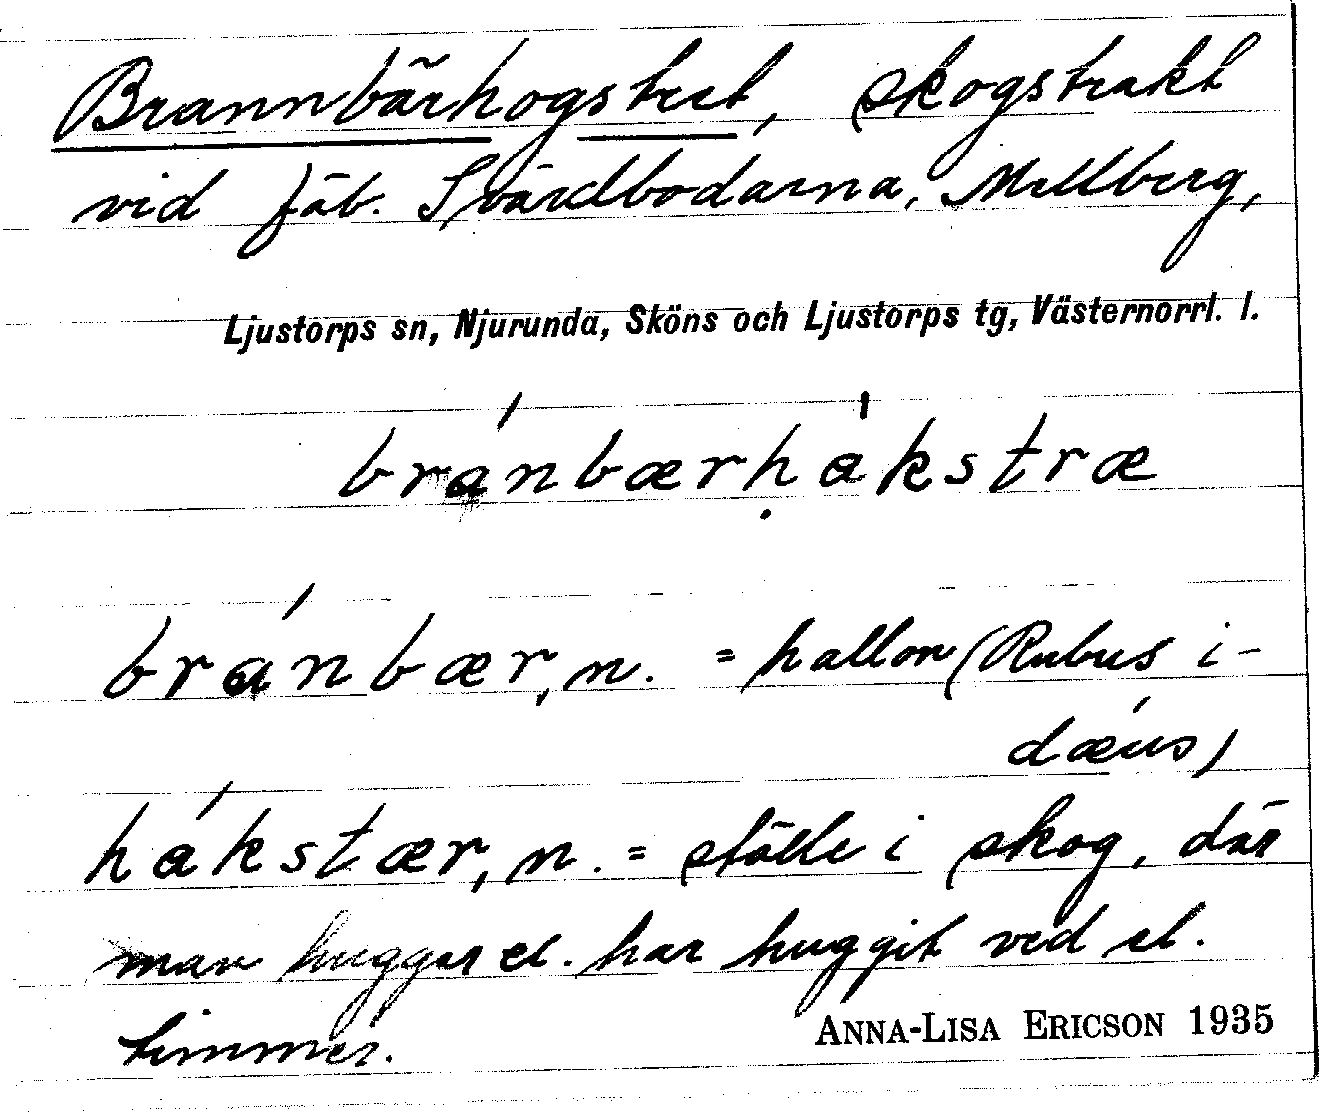 Brannbärhogstret, skogstrakt
vid fäb. Svärdbodarna, Mellberg,
Ljustorps sn, Njurunda, Sköns och Ljustorps tg, Västernorrl. l.
bránbærhákstræ
bránbær, n. = hallon (Rubus i-
dæus)
hákstær, n. = ställe i skog, där
man huggar el. har huggit ved el.
timmer.
ANNA-LISA ERICSON 1935